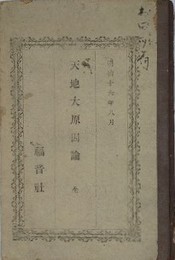 明治十六年八月
天地大原因論 完
福音社